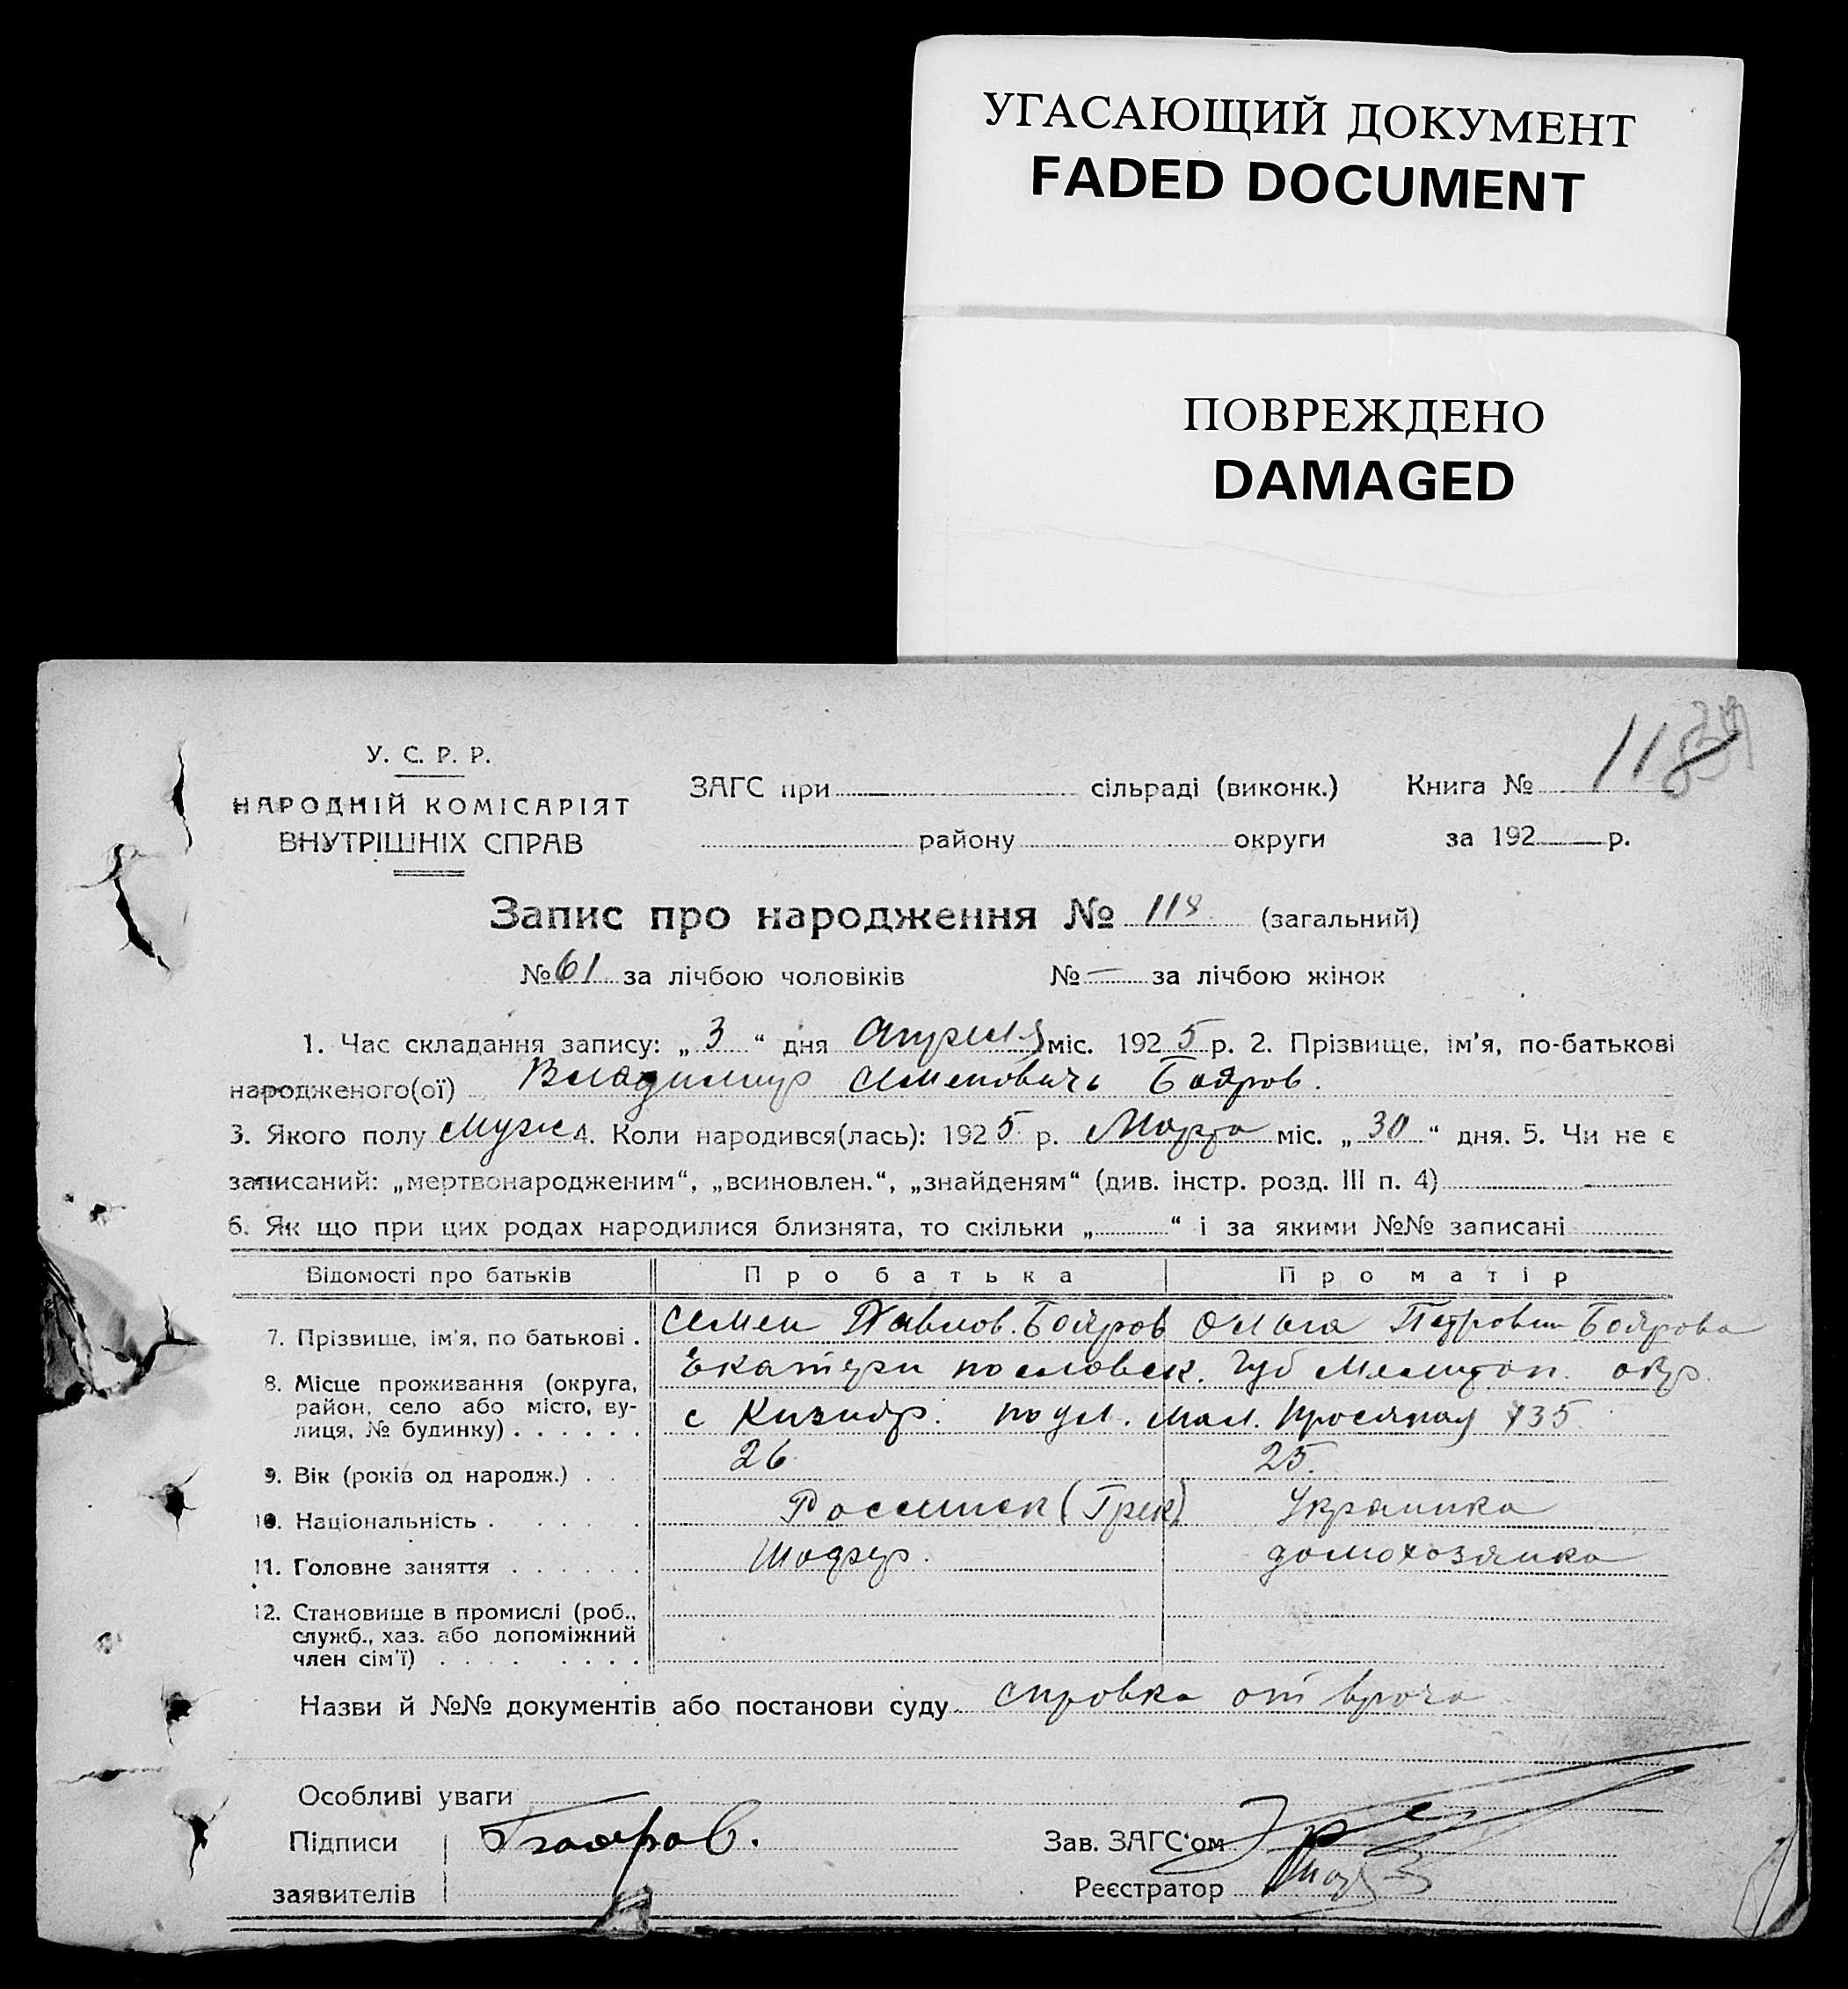 УГАСАЮЩИЙ ДОКУМЕНТ
FADED DOCUMENT
ПОВРЕЖДЕНО
DAMAGED
У. С. Р. Р.
НАРОДНІЙ КОМІСАРІЯТ
ВНУТРІШНІХ СПРАВ
ЗАГС при сільраді (виконк.) Книга № 118
району округи за 192 р.
Запис про народження № 118 (загальний)
№ 61 за лічбою чоловіків № — за лічбою жінок
1. Час складання запису: „ 3 “ дня Апреля міс. 192 5 р. 2. Прізвище, ім'я, по-батькові
народженого(ої) Владимир Семенович Бояров.
3. Якого полу Муж 4. Коли народився(лась): 192 5 р. Марта міс. „ 30 “ дня. 5. Чи не є
записаний: „мертвонародженим“, „всиновлен.“, „знайденям“ (див. інстр. розд. III п. 4)
6. Як що при цих родах народилися близнята, то скільки „ “ і за якими №№ записані
Відомості про батьків Про батька Про матір
7. Прізвище, ім'я, по батькові . Семен Павлов. Бояров Ольга Петровн Боярова
8. Місце проживання (округа, район, село або місто, вулиця, № будинку) . . . . . . Екатеринославск. Губ Мелитоп. окр.
с Кизияр. по ул. Мал. 135
9. Вік (років од народж.) . . 26 25.
10. Національність . . . . . (Грек) Украинка
11. Головне заняття . . . . . . Шофер. домохозяйка
12. Становище в промислі (роб.,
служб., хаз. або допоміжний
член сім'ї) . . . . . . . .
Назви й №№ документів або постанови суду справка от врача
Особливі уваги
Підписи Бояров. Зав. ЗАГС'ом
заявителів Реєстратор